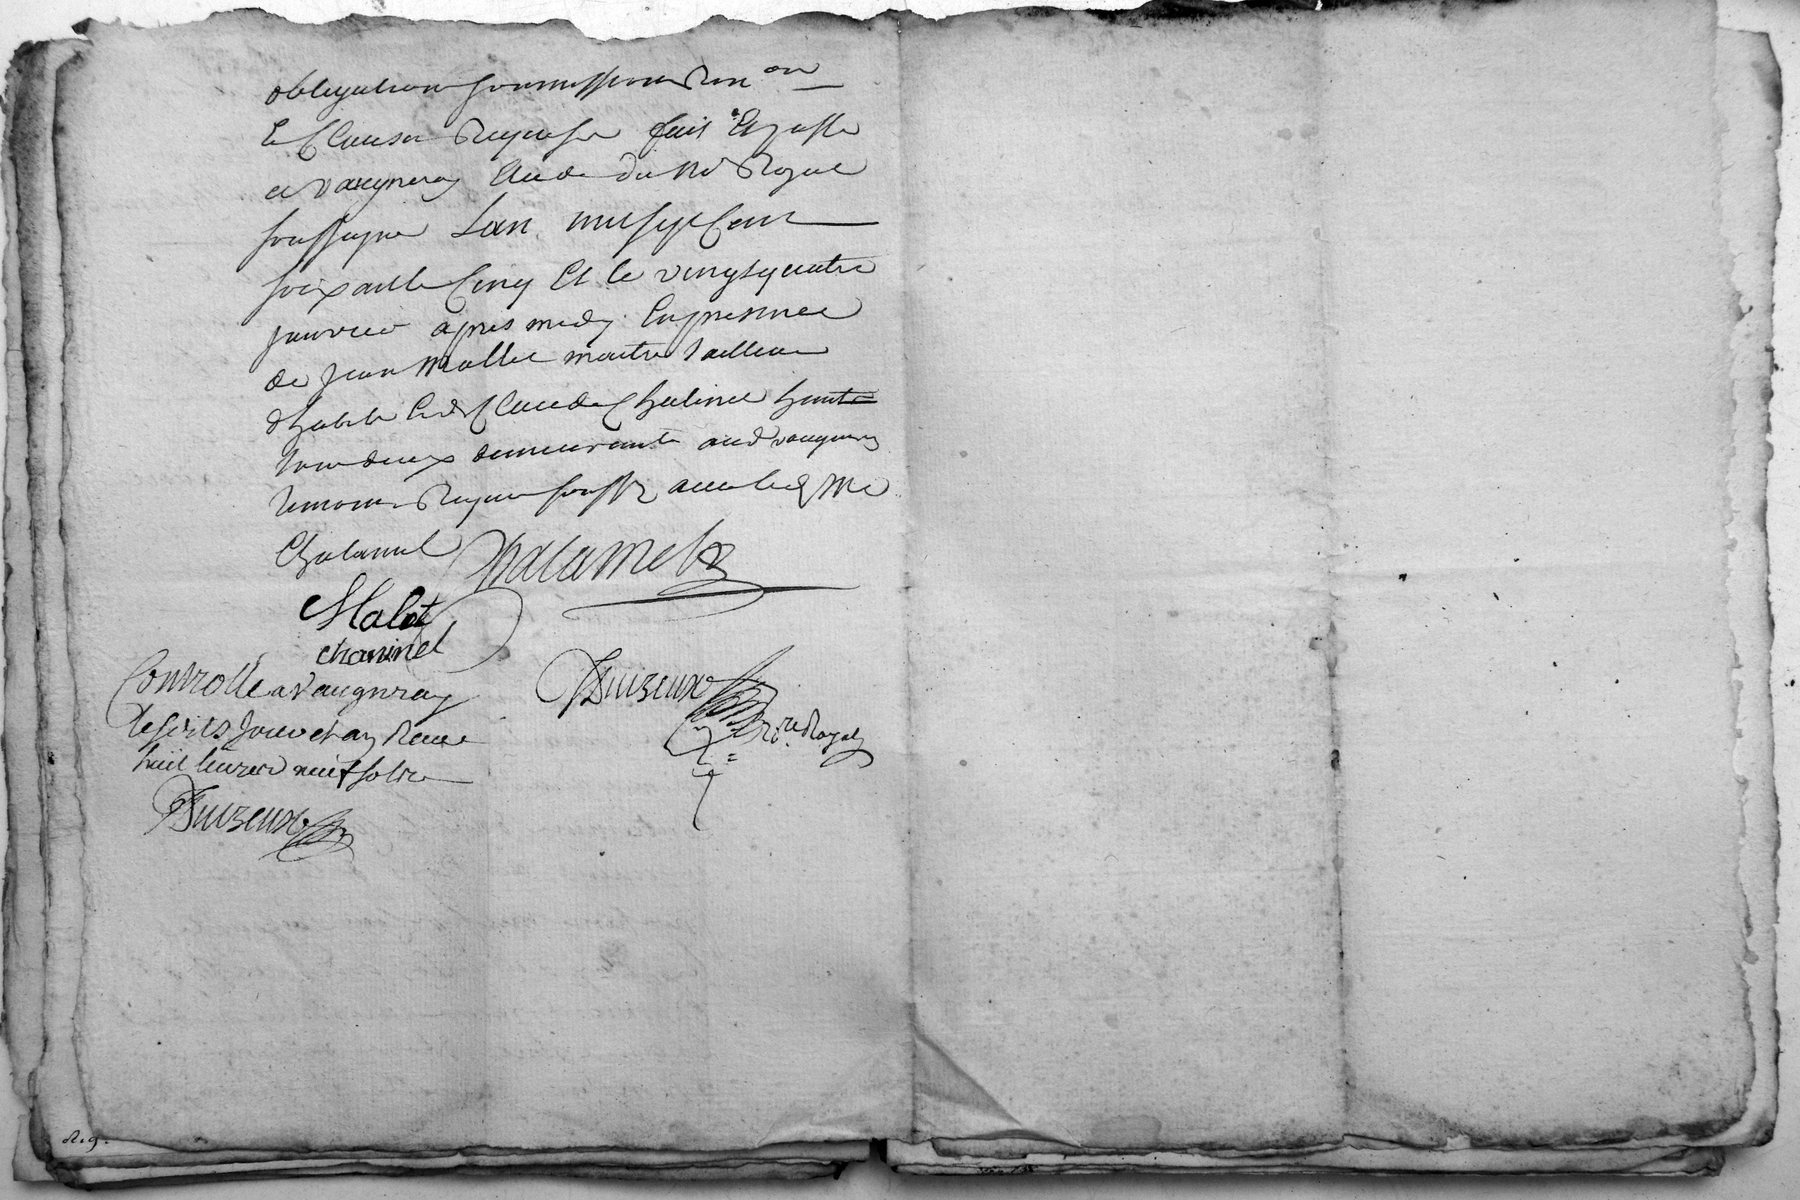 obligation soumission Ren on
et Clauses Requises fait Et passé
a Vaugneray Etude du No Royal
soussigné Lan mil sept Cent
soixante Cinq Et le vingt quatre
janvier apres midy En presence
de jean Mallet maitre tailleur
d'habits Et de Claude Chaninel
tous deux demeurants aud Vaugneray
temoins Requis soussnes avec led Me
Chalamel Chalamel
Malet
chaninel
Controllé a Vaugneray
lesdits jour et an Reçu
huit livres neuf sols
Re Royal